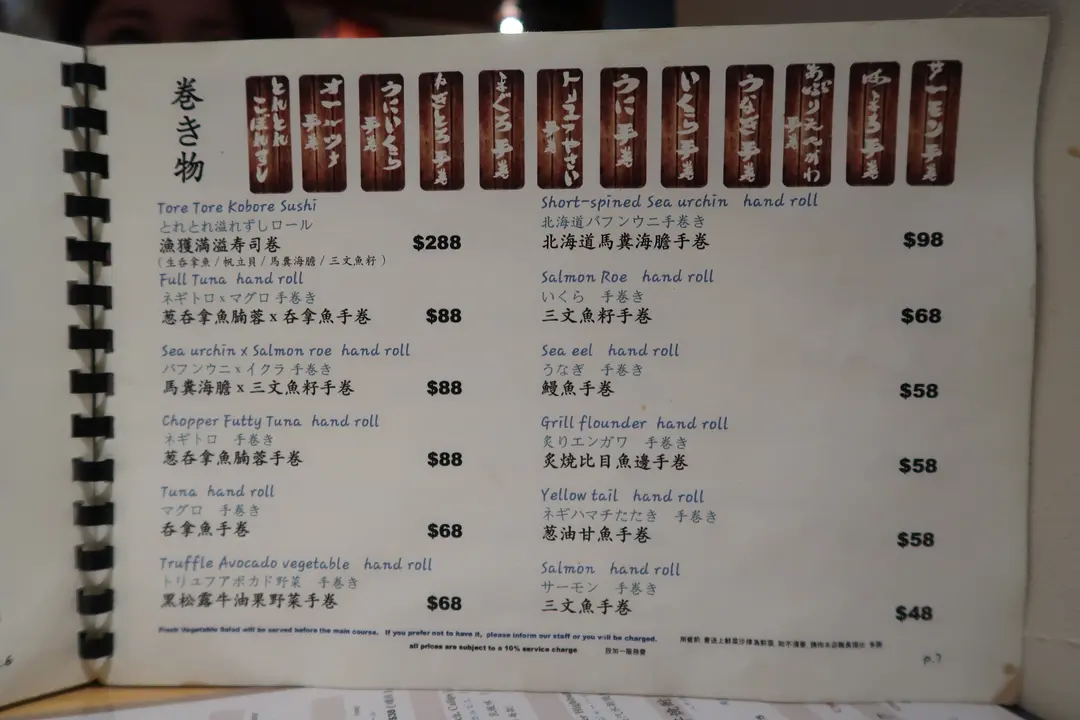 巻き物
とれとれ
こぼれずし
オールツナ
手巻
うにいくら
手巻
ねぎとろ手巻
まぐろ手巻
トリュフやさい
手巻
うに手巻
いくら手巻
うなぎ手巻
あぶりえんがわ
手巻
はまち手巻
サーモン手巻
Tore Tore Kobore Sushi
とれとれ溢れずしロール
漁獲滿溢寿司巻
$288
(生吞拿魚/帆立貝/馬糞海膽/三文魚籽)
Full Tuna hand roll
ネギトロxマグロ 手巻き
葱吞拿魚腩蓉x吞拿魚手巻
$88
Sea urchin x Salmon roe hand roll
バフンウニxイクラ 手巻き
馬糞海膽x三文魚籽手巻
$88
Chopper Futty Tuna hand roll
ネギトロ 手巻き
葱吞拿魚腩蓉手巻
$88
Tuna hand roll
マグロ 手巻き
吞拿魚手巻
$68
Truffle Avocado vegetable hand roll
トリュフアボカド野菜 手巻き
黑松露牛油果野菜手巻
$68
Short-spined Sea urchin hand roll
北海道バフンウニ手巻き
北海道馬糞海膽手巻
$98
Salmon Roe hand roll
いくら 手巻き
三文魚籽手巻
$68
Sea eel hand roll
うなぎ 手巻き
鰻魚手巻
$58
Grill flounder hand roll
炙りエンガワ 手巻き
炙焼比目魚邊手巻
$58
Yellow tail hand roll
ネギハマチたたき 手巻き
葱油甘魚手巻
$58
Salmon hand roll
サーモン 手巻き
三文魚手巻
$48
Fresh Vegetable Salad will be served before the main course. If you prefer not to have it, please inform our staff or you will be charged.
all prices are subject to a 10% service charge 設加一服務費
p.7